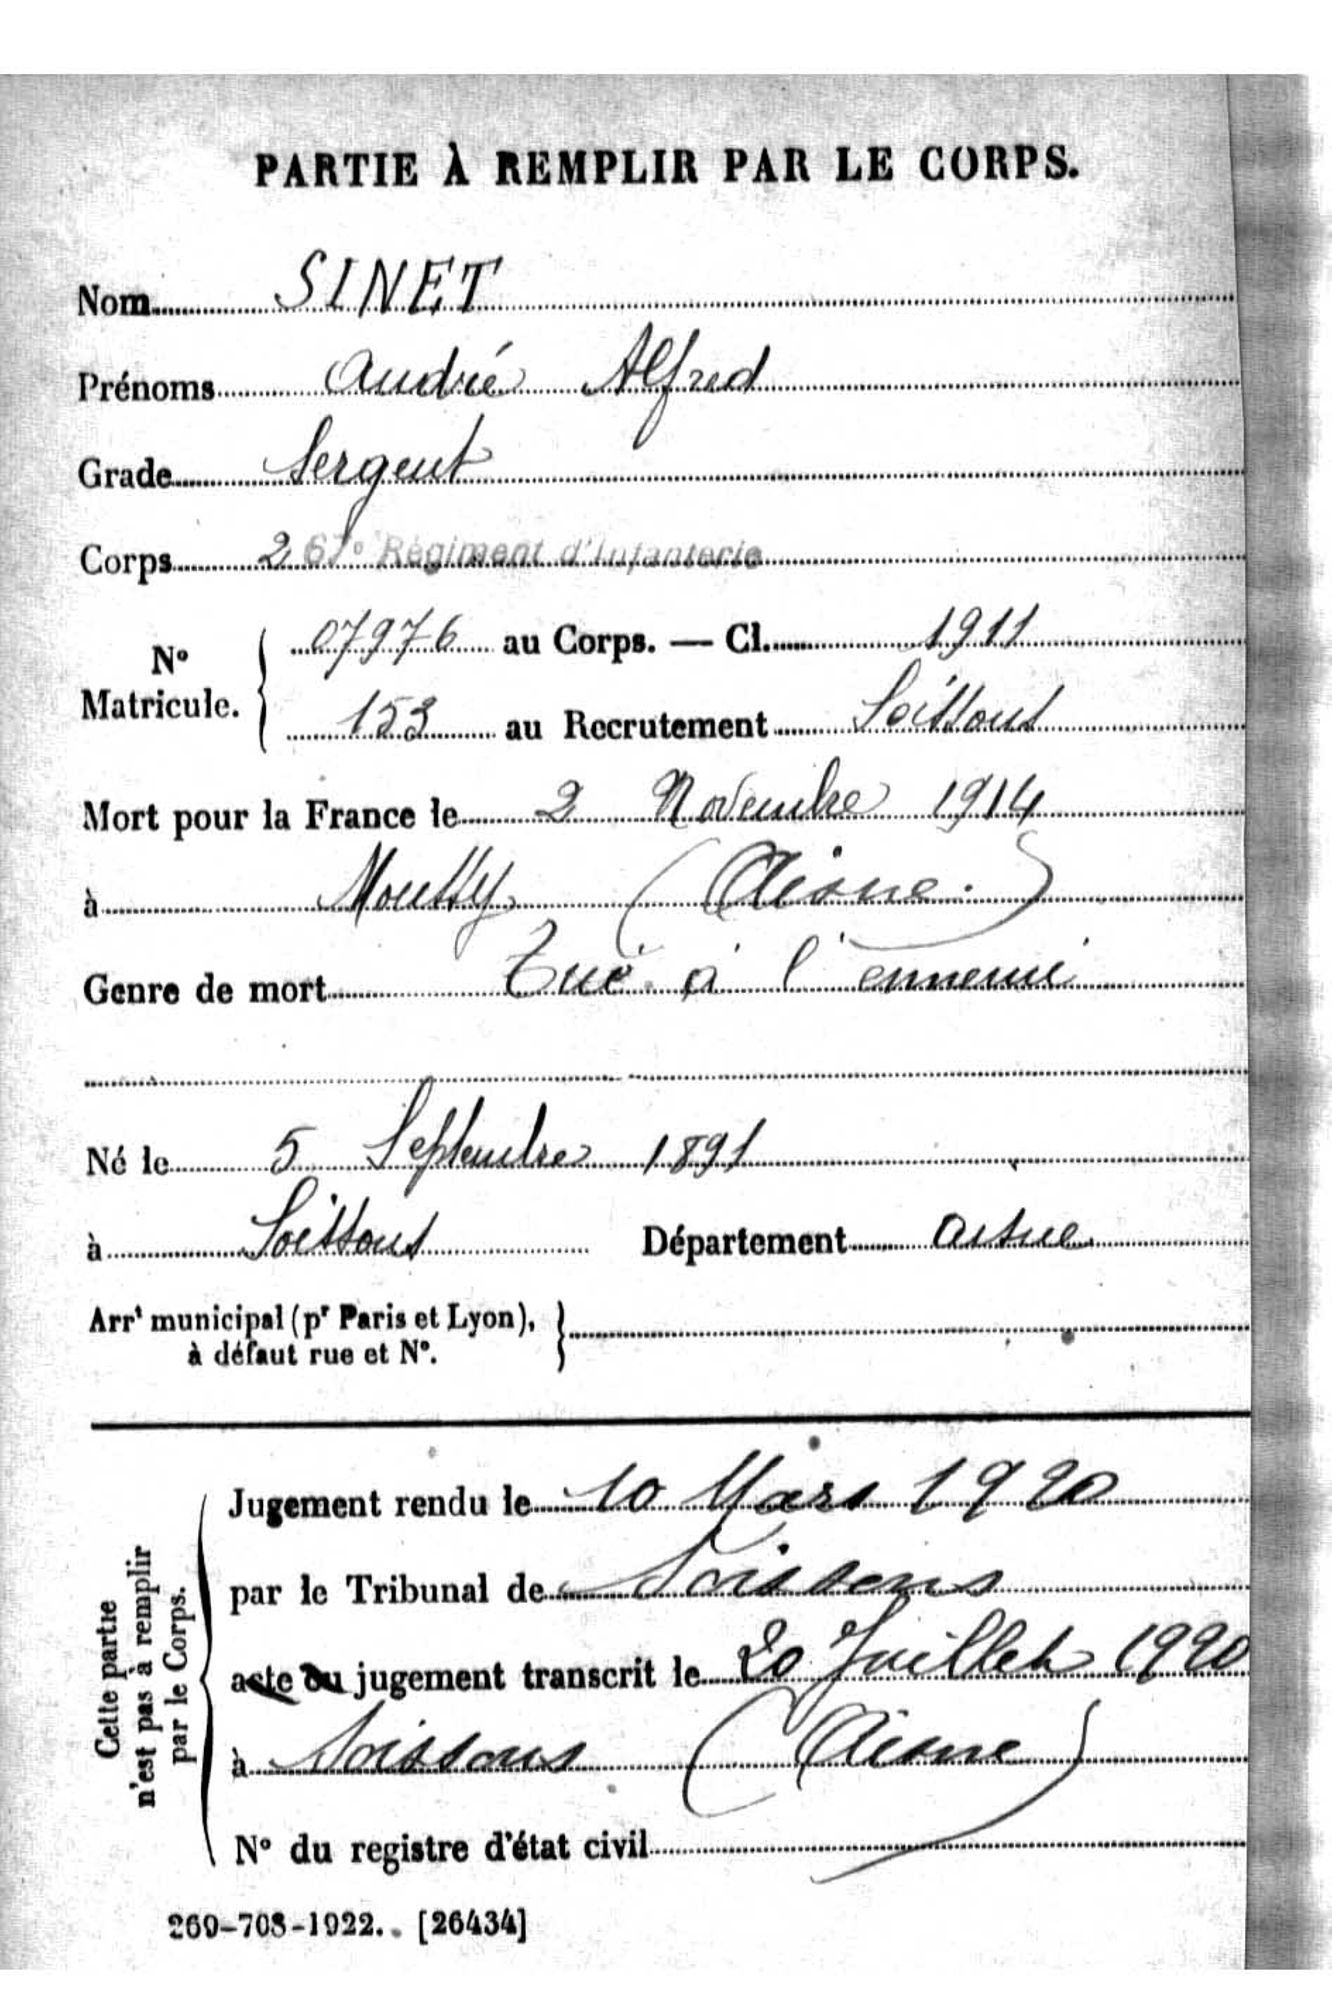 PARTIE À REMPLIR PAR LE CORPS.
Nom SINET
Prénoms André Alfred
Grade Sergent
Corps 2 67e Régiment d'Infanterie
N° Matricule. { 07976 au Corps. — Cl. 1911
153 au Recrutement Soissons
Mort pour la France le 2 Novembre 1914
à Moussy (Aisne.)
Genre de mort Tué à l'ennemi
Né le 5 Septembre 1891
à Soissons Département Aisne
Arrt municipal (pr Paris et Lyon), }
à défaut rue et N°.
Cette partie
n'est pas à remplir
par le Corps.
Jugement rendu le 10 Mars 1920
par le Tribunal de Soissons
acte ou jugement transcrit le 20 Juillet 1920
à Soissons (Aisne)
N° du registre d'état civil
269-708-1922. [26434]